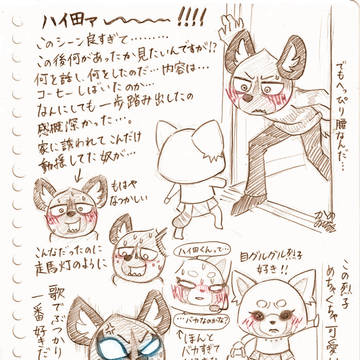 ハイ田ァ〜〜〜!!!!
このシーン良すぎて………
この後何があったか見たいんですが!?
何を話し、何をしたのだ…内容は…
コーヒーしばいたのか…
なんにしても一歩踏み出したの
感慨深かった…。
家に誘われてこんだけ
動揺してた奴が…
でもへっぴり腰なんだ…
もはや
なつかしい
こんなだったのに
走馬灯のように
ハイ田くんって…
…バカなのかな?
↑ほんと
バカすぎて
目グルグル烈子
好き!!
この烈子
めちゃくちゃ可愛
歌でぶつかり
一番好きだ